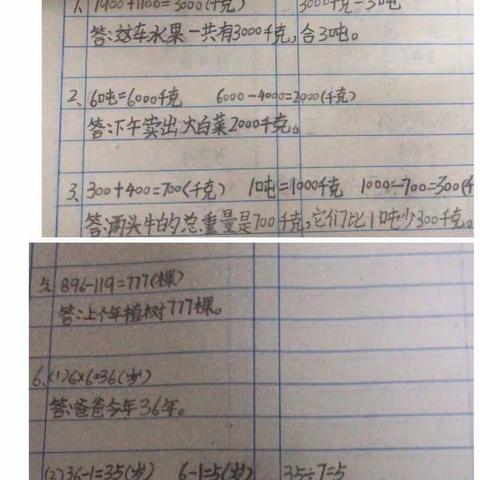 1. 1900+1100=3000(千克) 3000千克=3吨
答:这车水果一共有3000千克,合3吨。
2、6吨=6000千克 6000-4000=2000(千克)
答:下午卖出大白菜2000千克。
3、300+400=700(千克) 1吨=1000千克 1000-700=300(千
答:两头牛的总重量是700千克,它们比1吨少300千克。
5、896-119=777(棵)
答:上个年植树777棵。
6、(1)6×6=36(岁)
答:爸爸今年36年。
(2)36-1=35(岁) 6-1=5(岁) 35÷7=5